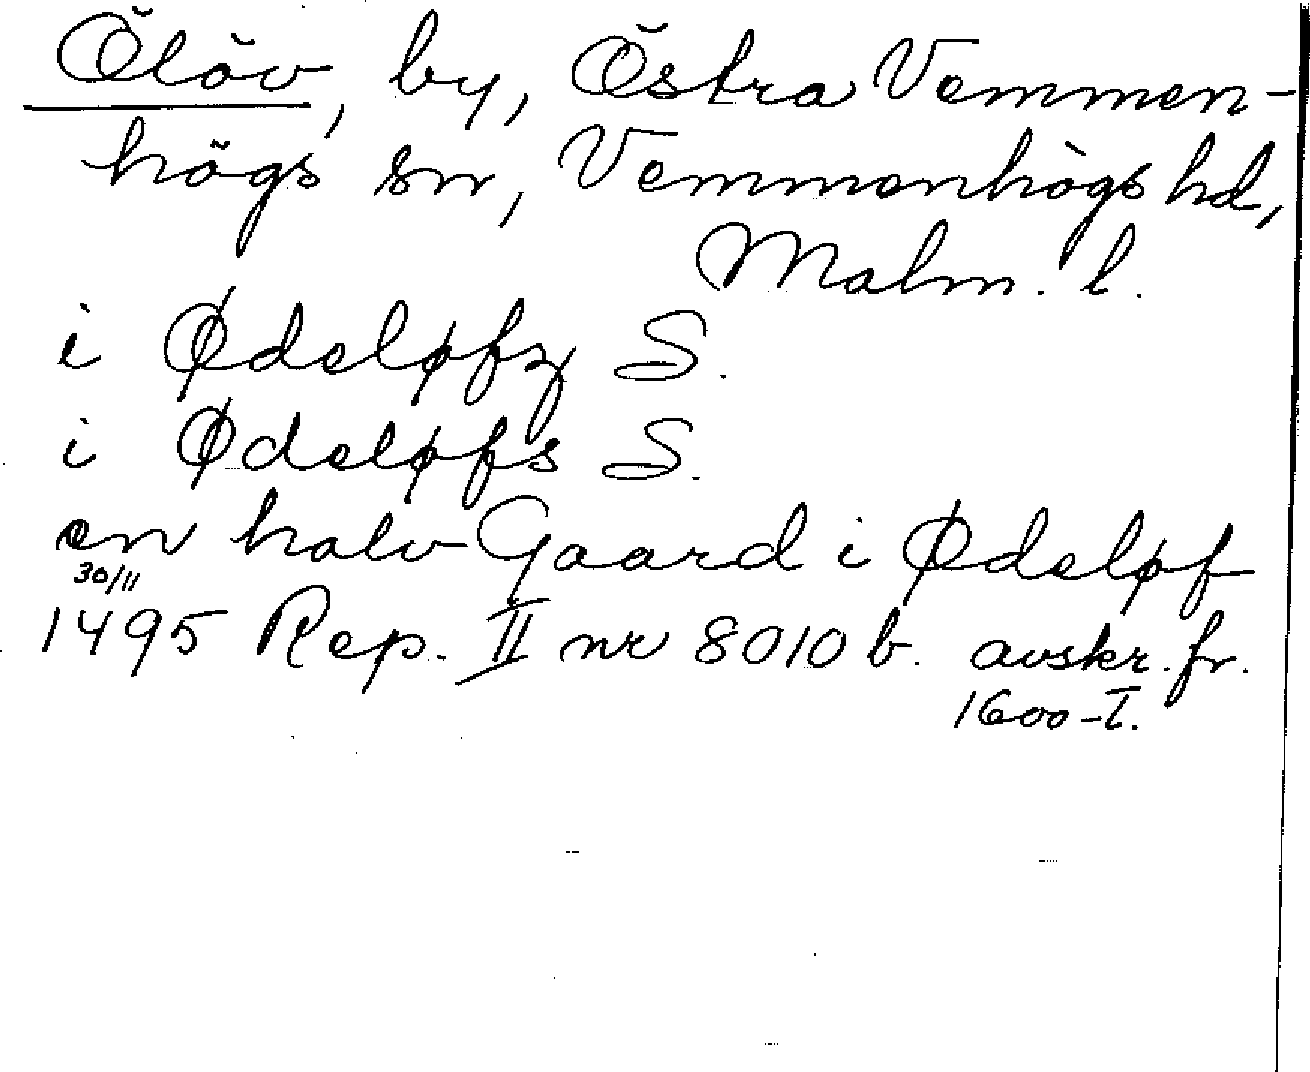 Ölöv, by, Östra Vemmen-
högs sn, Vemmenhögs hd,
Malm. l.
i Ødeløfz S.
i Ødeløfs S.
en halv Gaard i Ødeløf
30/11
1495 Rep. II nr 8010 b. avskr. fr.
1600-T.